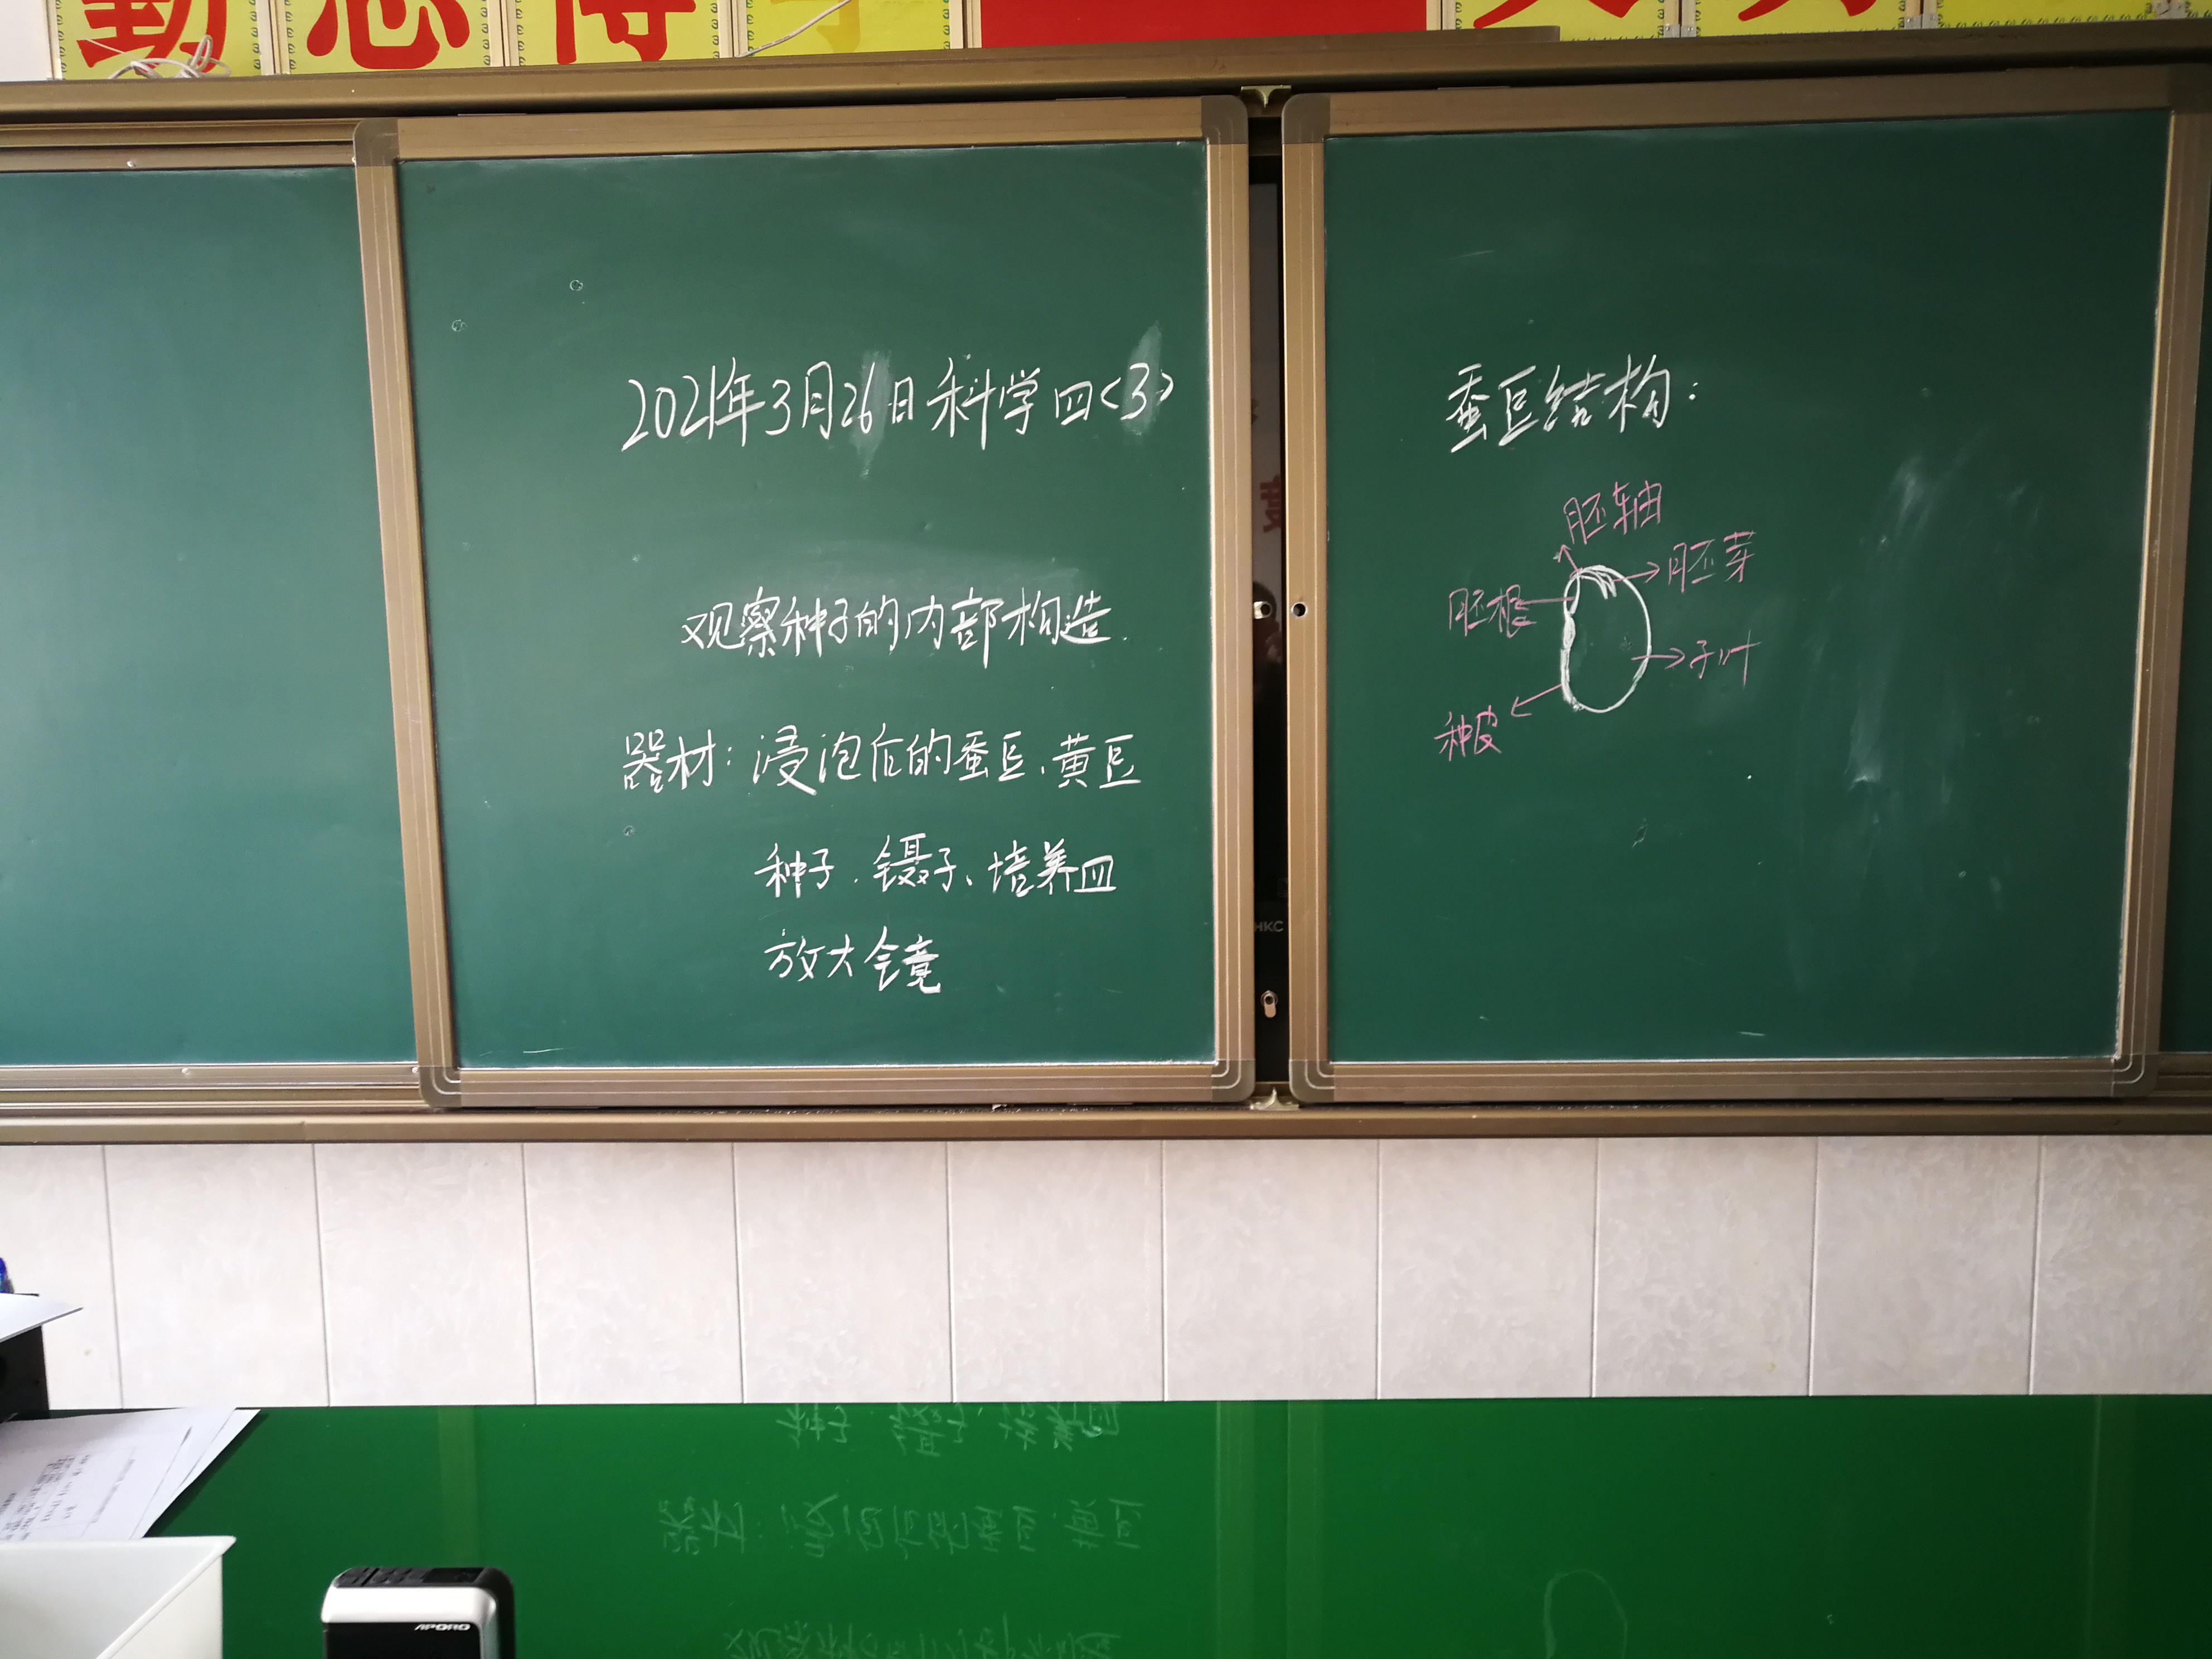 勤思博学
2021年3月26日科学四<3>
观察种子的内部构造.
器材：浸泡后的蚕豆、黄豆
种子、镊子、培养皿
放大镜
蚕豆结构：
胚轴
胚芽
胚根
子叶
种皮
HKC
APORO